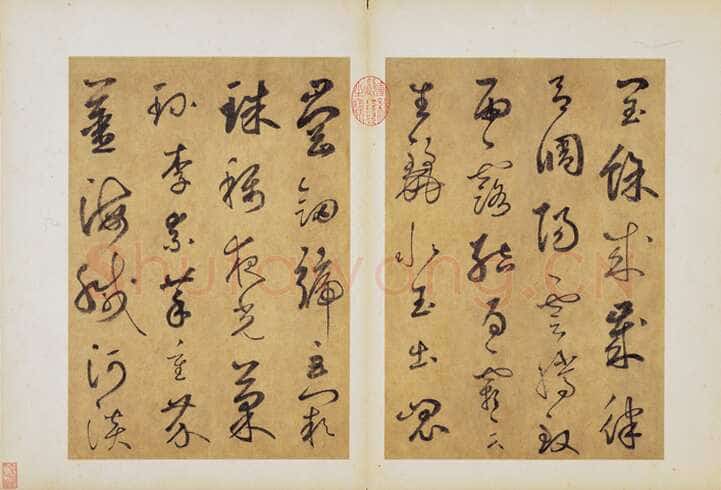 閏餘成歲律
呂調陽雲騰致
雨露結為霜金
生麗水玉出崑
崗劍號巨闕
珠稱夜光菓
珍李柰菜重芥
薑海鹹河淡
shufawang.cn